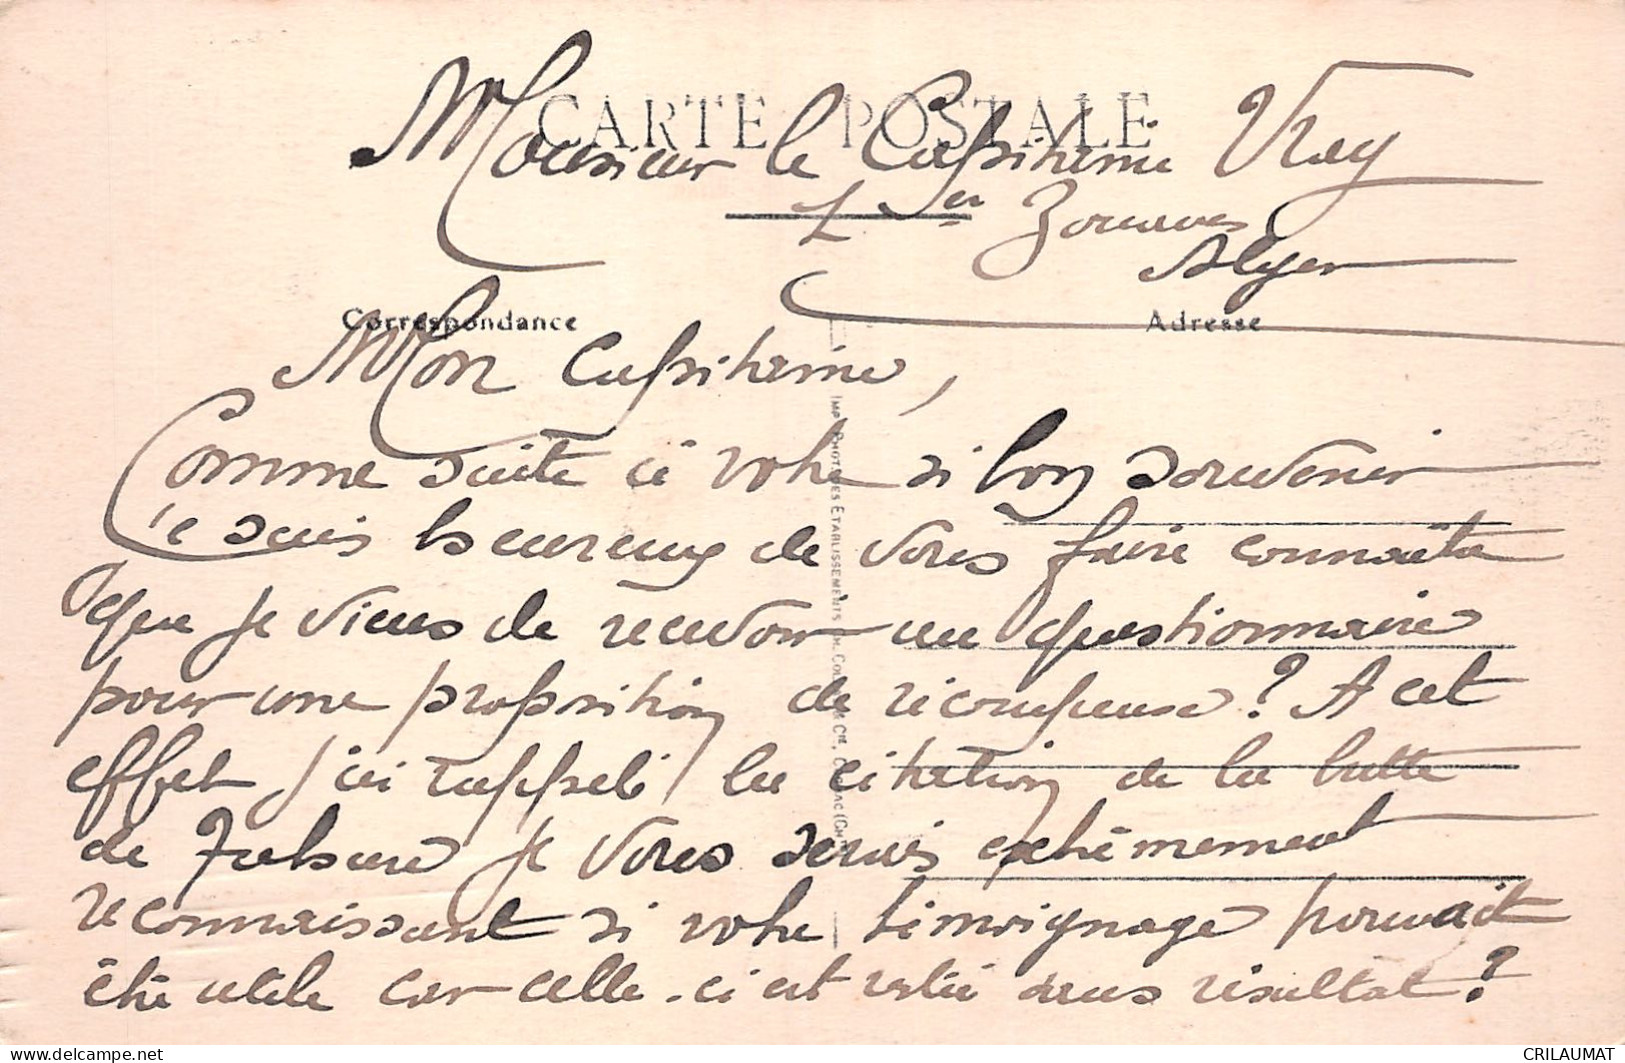 CARTE POSTALE
Monsieur le Capitaine Vray
1er Zouaves
Alger
Correspondance
Adresse
Mon Capitaine,
Comme suite à votre si bon souvenir
je suis heureux de vous faire connaître
que je viens de recevoir un questionnaire
pour une proposition de récompense? A cet
effet j'ai rappelé la citation de la butte
de Tahure je vous serais extrêmement
reconnaissant si votre témoignage pouvait
être utile car celle-ci est restée sans résultat?
CRILAUMAT